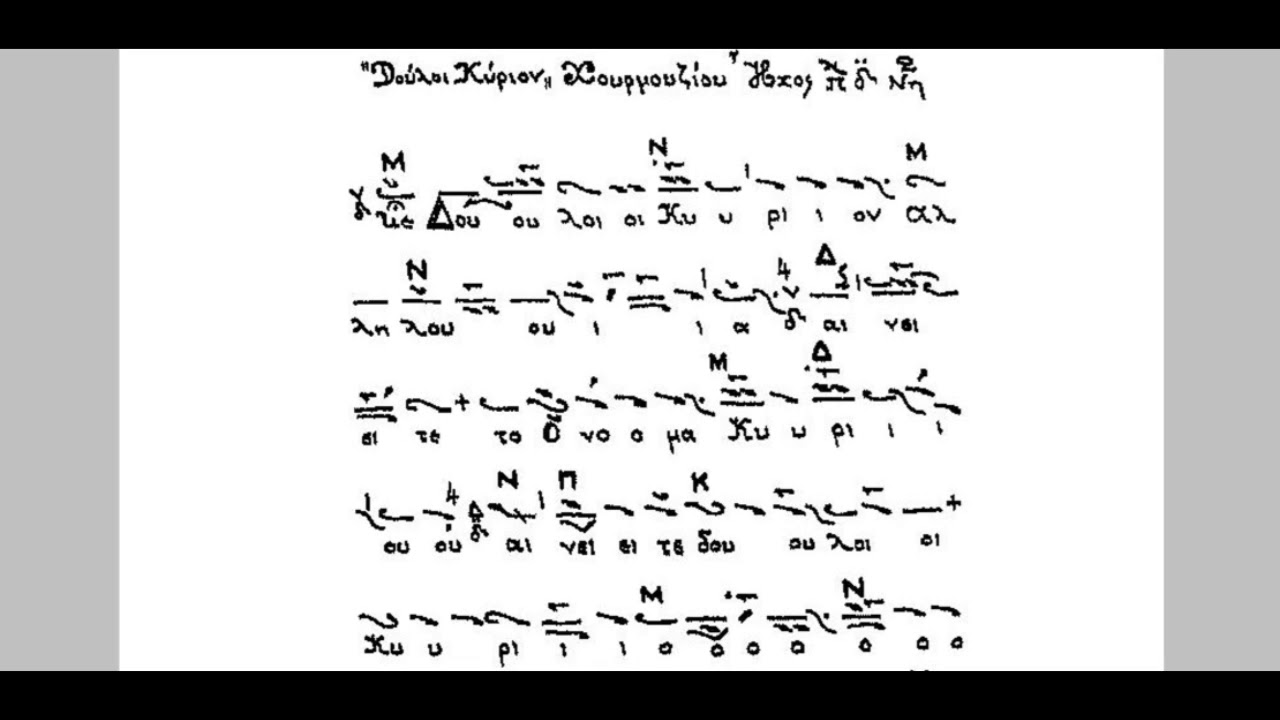 "Δούλοι Κύριον„ Χουρμουζίου Ἦχος λ π δ̈ Νη
Μ Ν Μ
Νε Δου ου λοι οι Κυ υ ρι ι ον αλ
Ν 4 Δ
λη λου ου ι ι α αι νει
Μ Δ
ει τε το ο νο ο μα Κυ υ ρι ι ι
4 Ν Π Κ
ου ου αι νει ει τε δου ου λοι οι
Μ Ν
Κυ υ ρι ι ι ο ο ο ο ο ο ο